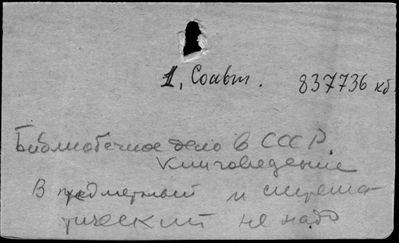 1, Соавт. 837736 кб.
Библиотечное дело в СССР.
Книговедение
В предметный и система-
тический не надо